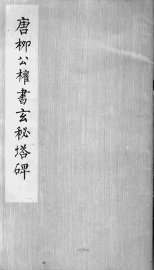 唐柳公權書玄秘塔碑